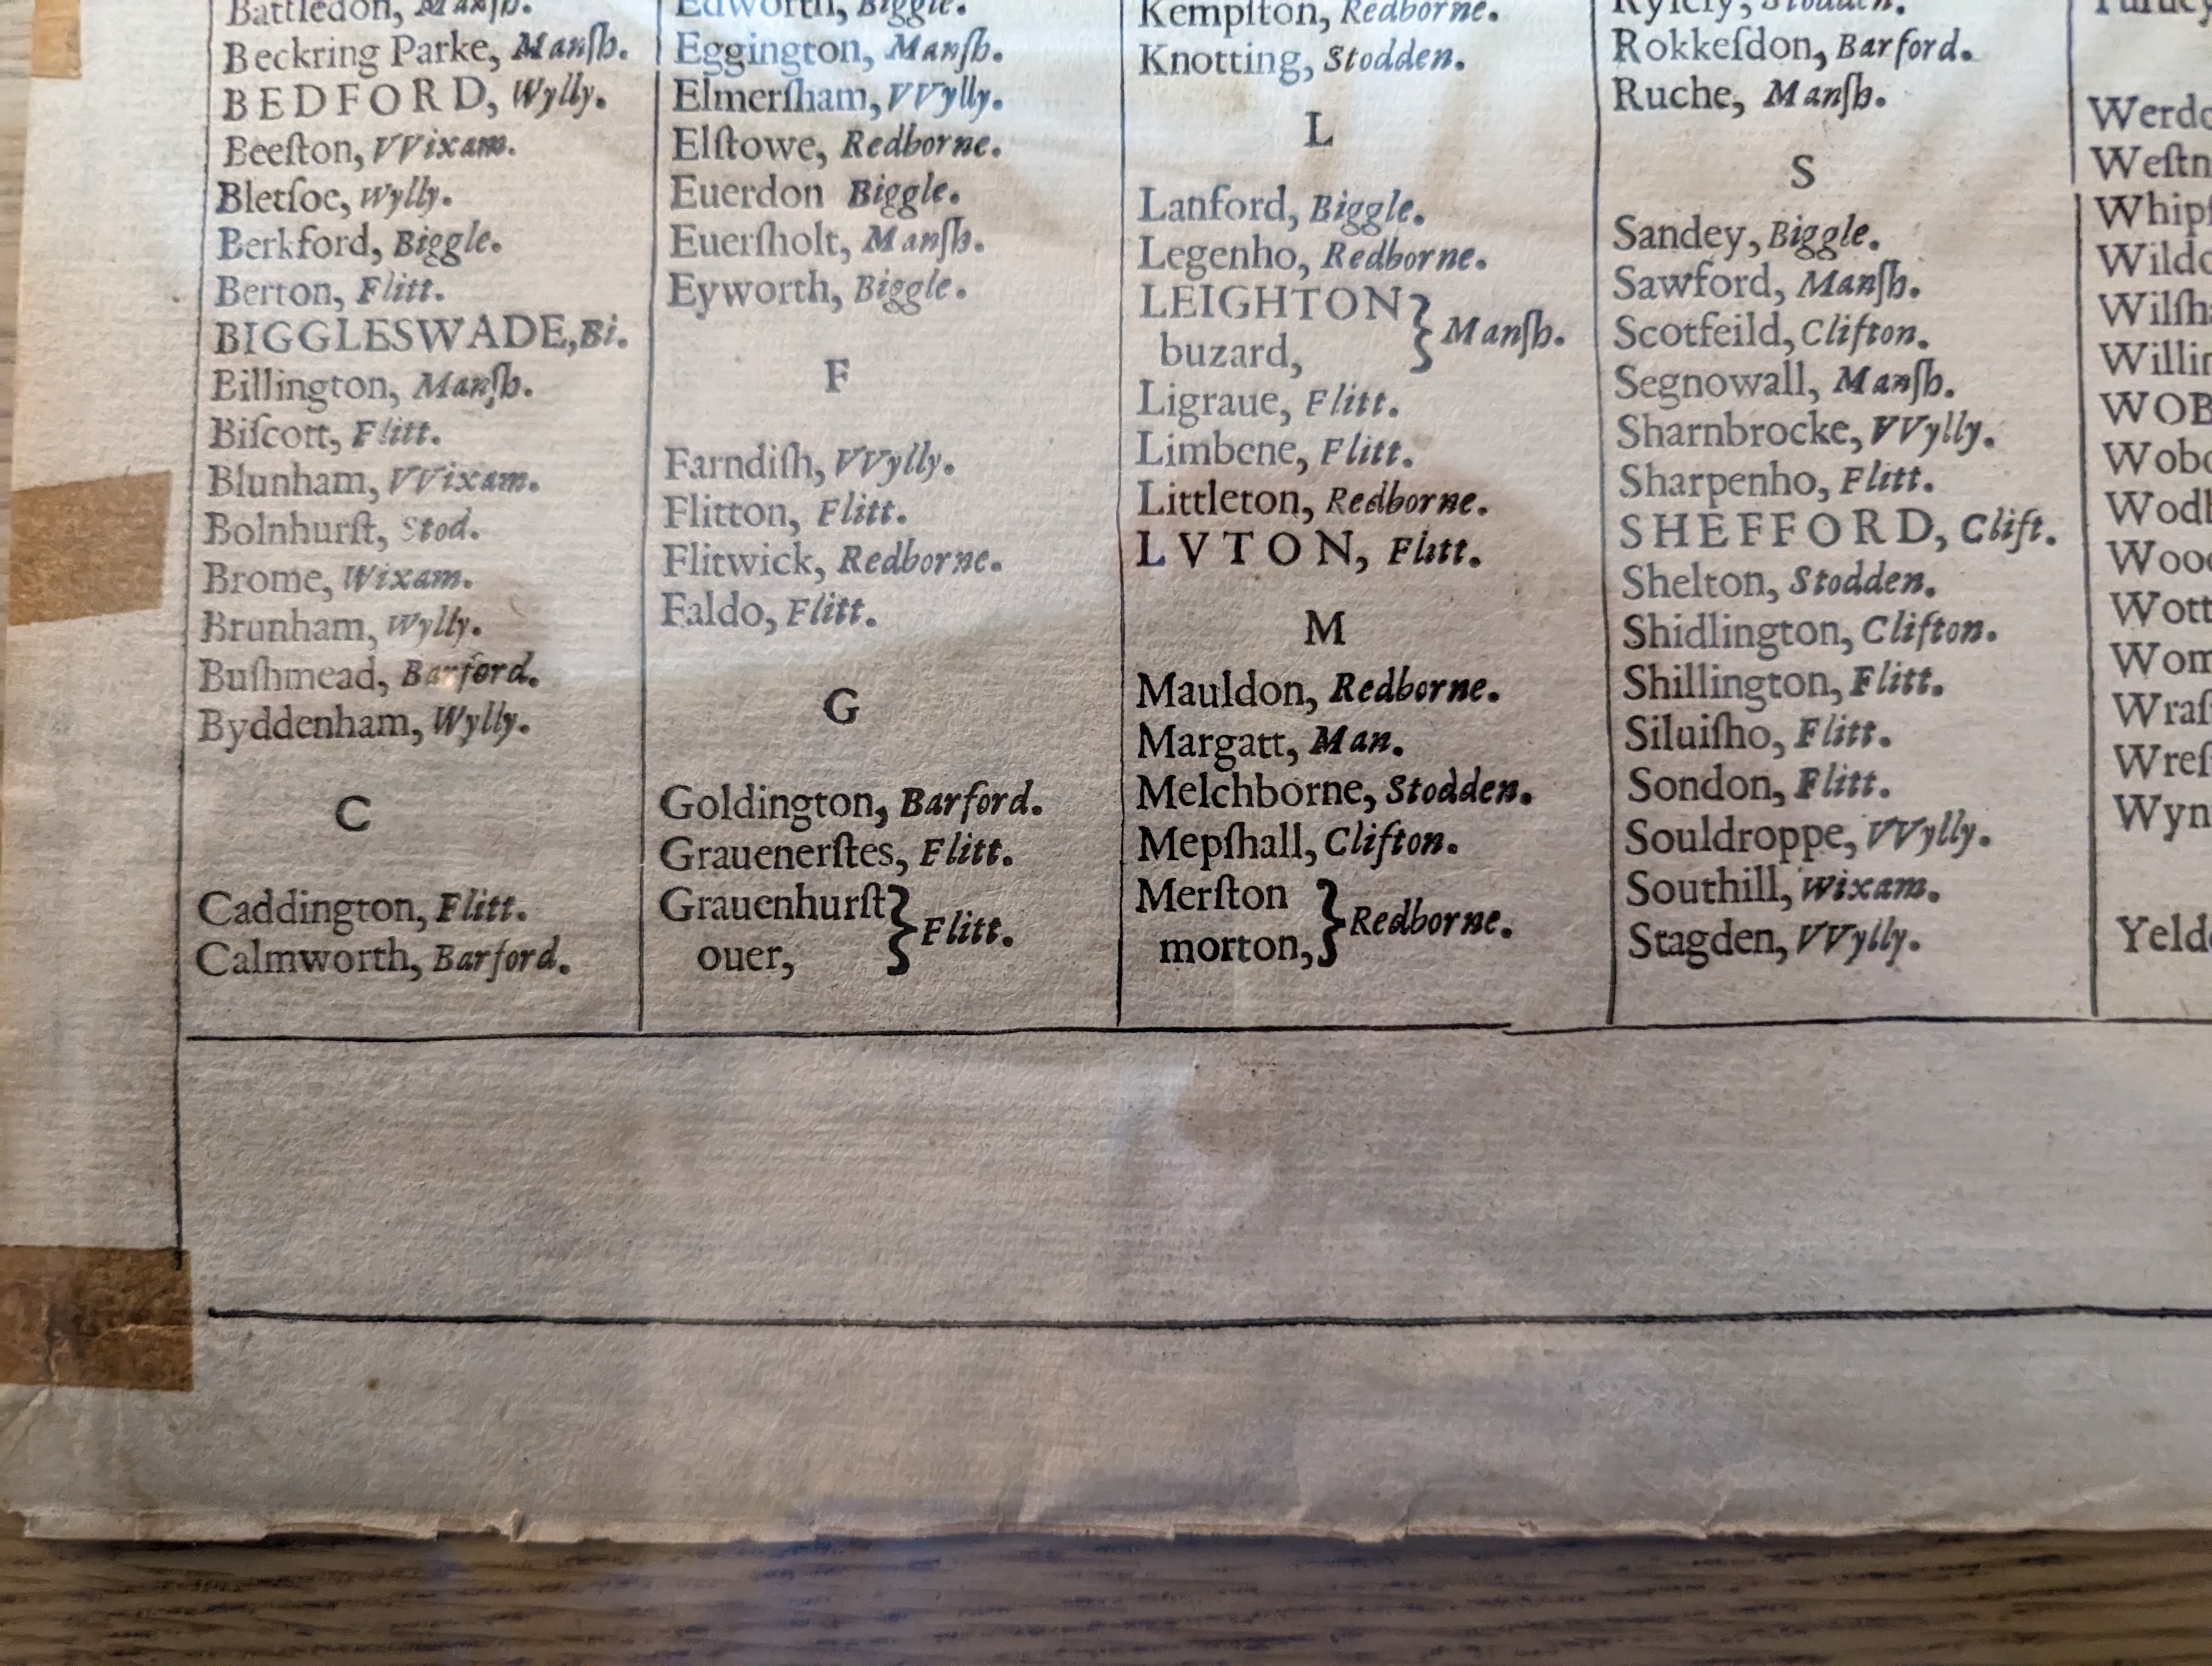 Battledon, Mansh.
Beckring Parke, Manſh.
BEDFORD, Wylly.
Beeſton, VVixam.
Bletſoe, Wylly.
Berkford, Biggle.
Berton, Flitt.
BIGGLESWADE, Bi.
Billington, Manſh.
Biſcott, Flitt.
Blunham, VVixam.
Bolnhurſt, Stod.
Brome, Wixam.
Brunham, Wylly.
Buſhmead, Barford.
Byddenham, Wylly.
C
Caddington, Flitt.
Calmworth, Barford.
Edworth, Biggle.
Eggington, Manſh.
Elmerſham, VVylly.
Elſtowe, Redborne.
Euerdon Biggle.
Euerſholt, Manſh.
Eyworth, Biggle.
F
Farndiſh, VVylly.
Flitton, Flitt.
Flitwick, Redborne.
Faldo, Flitt.
G
Goldington, Barford.
Grauenerſtes, Flitt.
Grauenhurſt
ouer, } Flitt.
Kempſton, Redborne.
Knotting, Stodden.
L
Lanford, Biggle.
Legenho, Redborne.
LEIGHTON
buzard, } Manſh.
Ligraue, Flitt.
Limbene, Flitt.
Littleton, Redborne.
LVTON, Flitt.
M
Mauldon, Redborne.
Margatt, Man.
Melchborne, Stodden.
Mepſhall, Clifton.
Merſton
morton, } Redborne.
Stodden.
Rokkeſdon, Barford.
Ruche, Manſh.
S
Sandey, Biggle.
Sawford, Manſh.
Scotfeild, Clifton.
Segnowall, Manſh.
Sharnbrocke, VVylly.
Sharpenho, Flitt.
SHEFFORD, Clift.
Shelton, Stodden.
Shidlington, Clifton.
Shillington, Flitt.
Siluiſho, Flitt.
Sondon, Flitt.
Souldroppe, VVylly.
Southill, Wixam.
Stagden, VVylly.